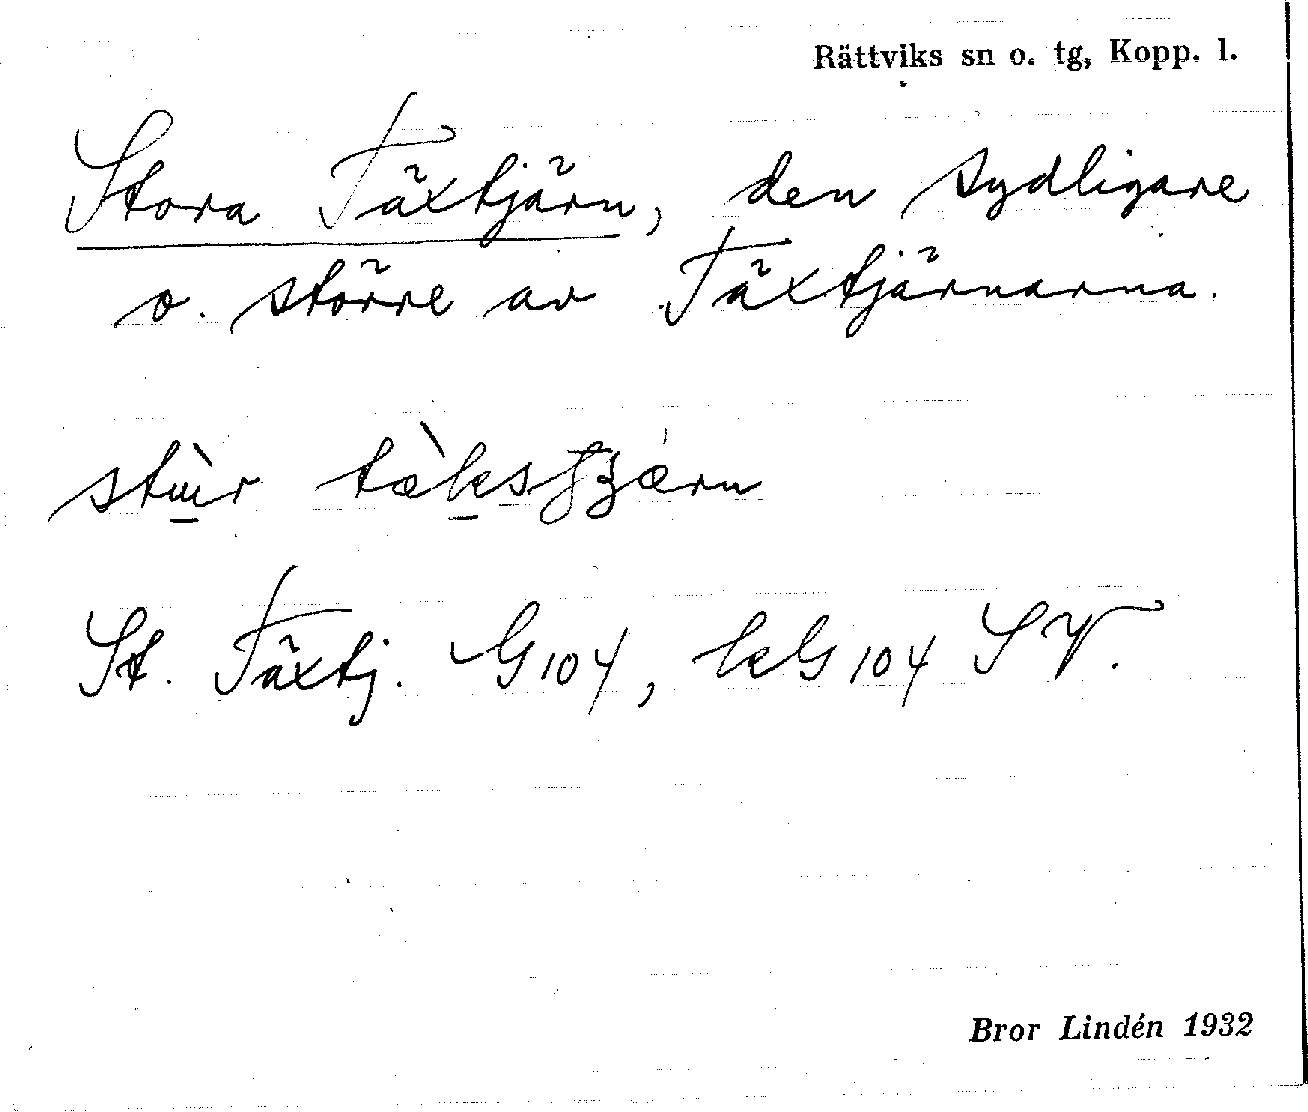 Rättviks sn o. tg, Kopp. l.
Stora Täxtjärn, den sydligare
o. större av Täxtjärnarna.
St. Täxtj. G 104, kG 104 SV.
Bror Lindén 1932